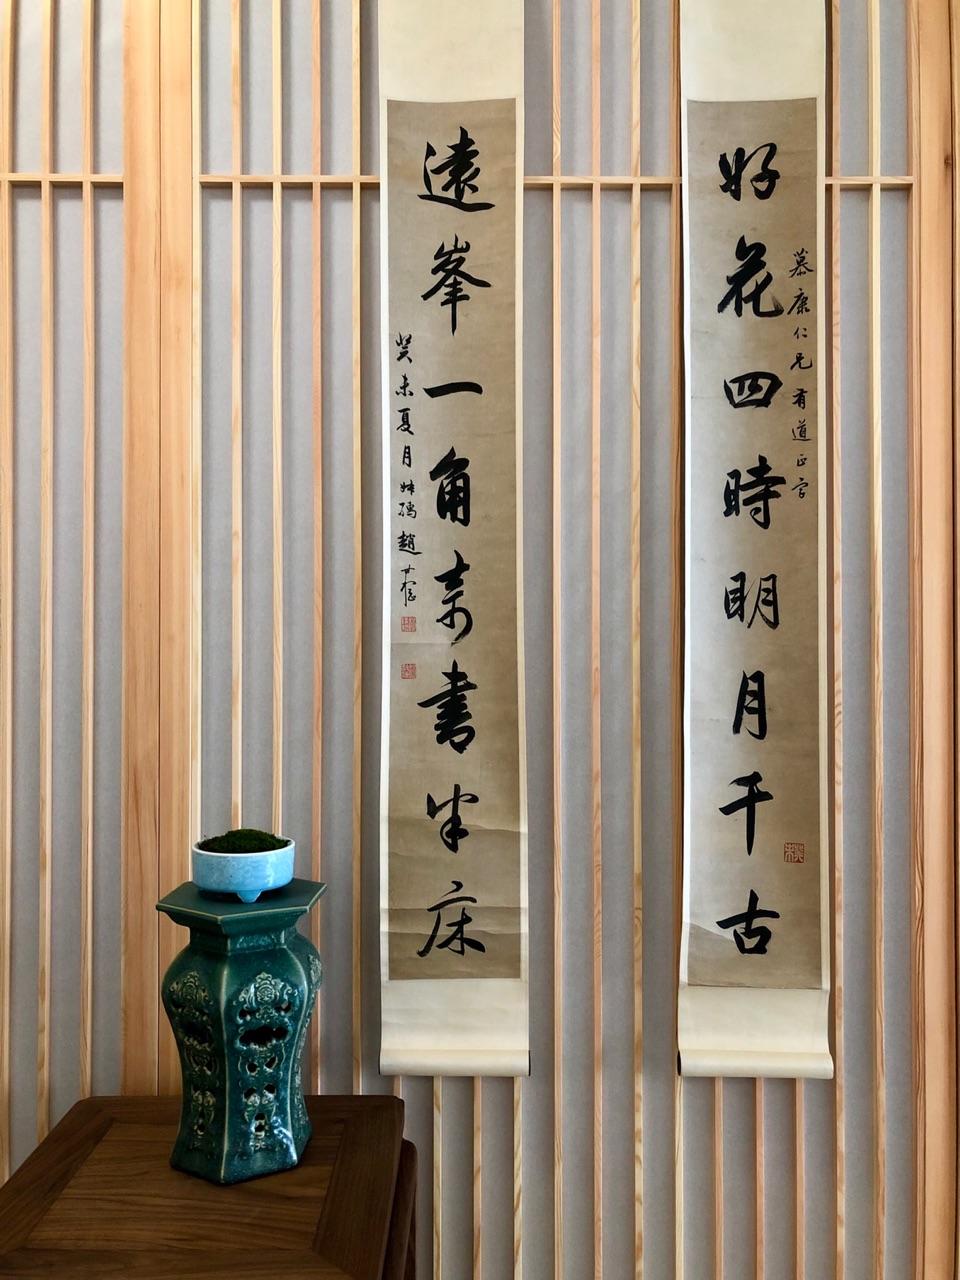 慕康仁兄有道正字
好花四時明月千古
遠峯一角奇書半床
癸未夏月
趙